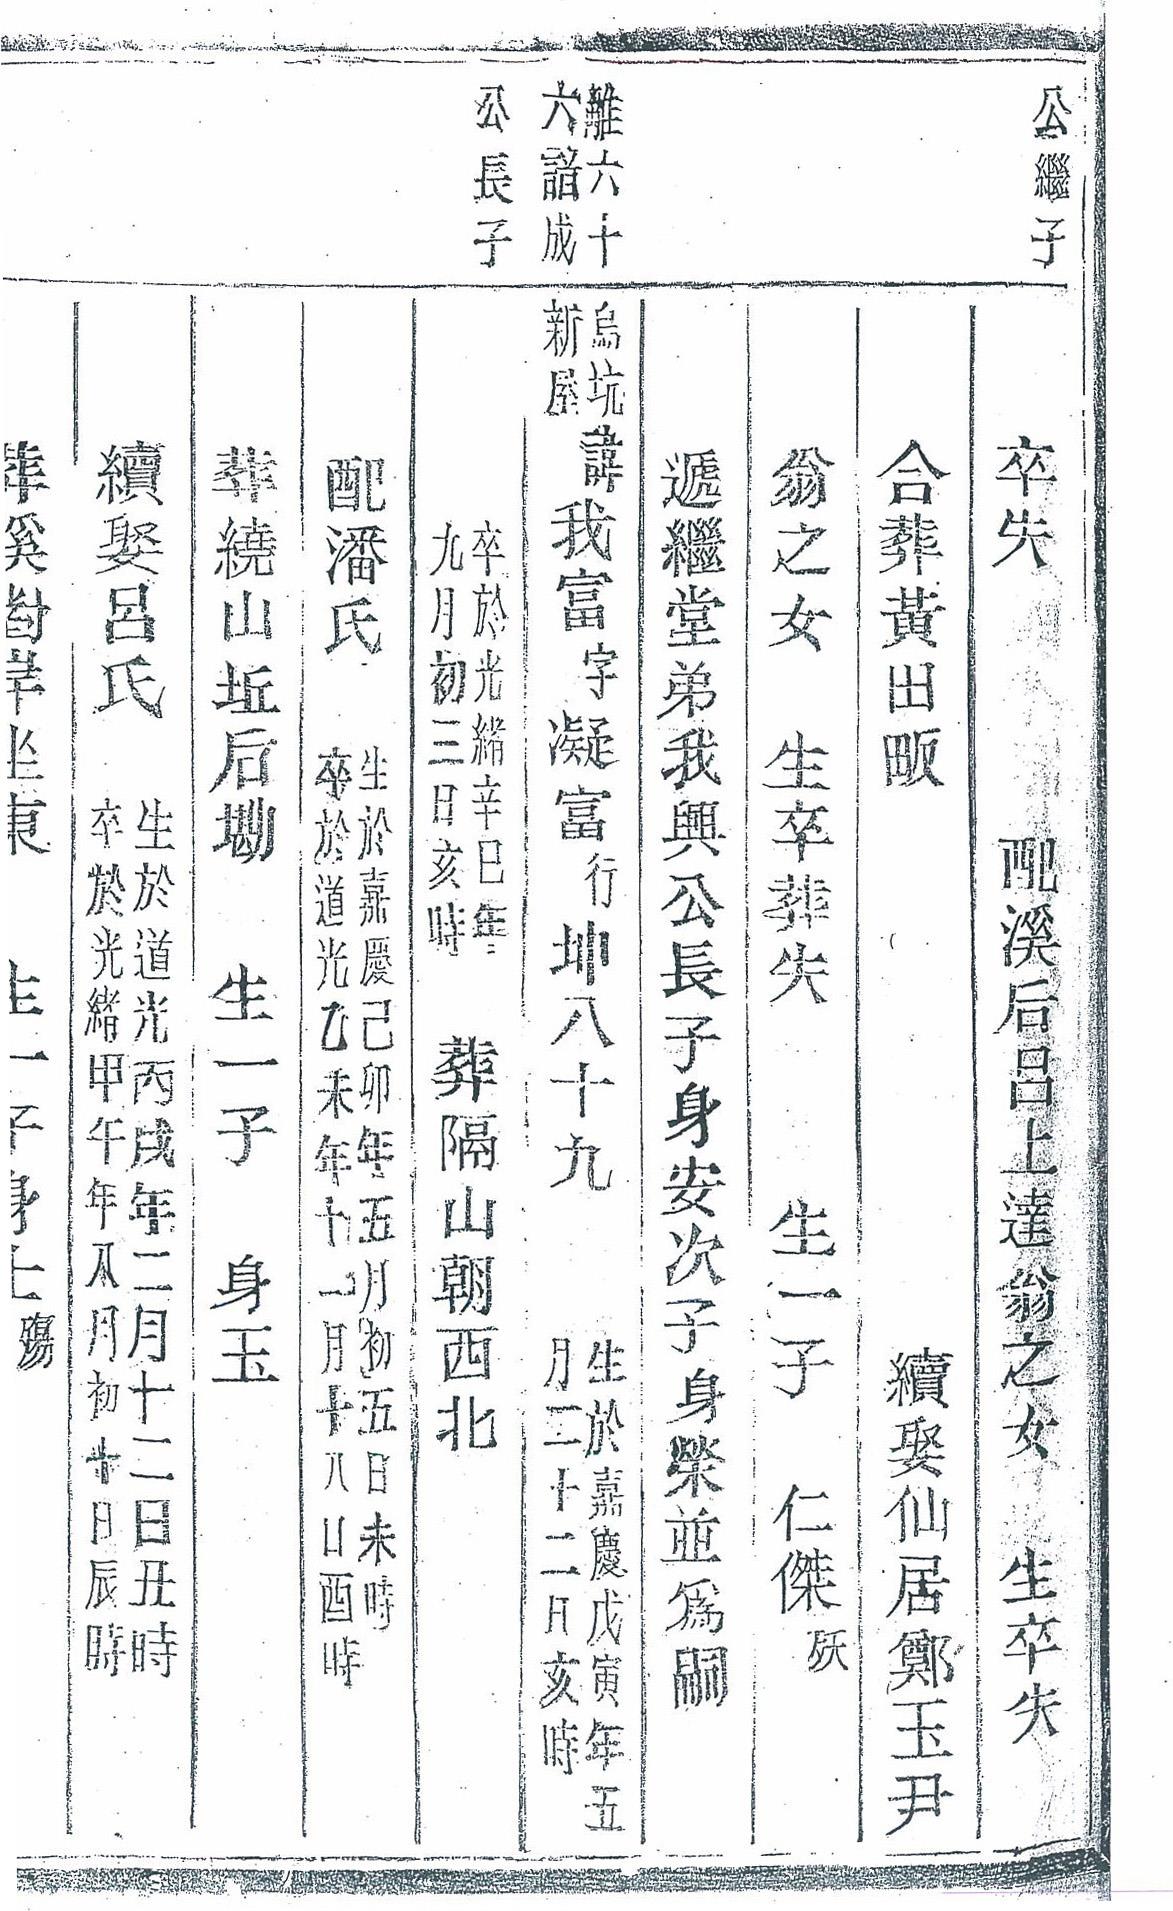 公繼子
離六十
六諳成
公長子
卒失 配溪后呂上達翁之女 生卒失
合葬黃出畈 續娶仙居鄭玉尹
翁之女 生卒葬失 生一子 仁傑 殀
遞繼堂弟我興公長子身安次子身榮並為嗣
烏坑
新屋
諱我富字凝富行坤八十九
生於嘉慶戊寅年五
月二十二日亥時
卒於光緒辛巳年
九月初三日亥時
葬隔山朝西北
配潘氏
生於嘉慶己卯年五月初五日未時
卒於道光乙未年十一月十八日酉時
葬繞山坵后墈 生一子 身玉
續娶呂氏
生於道光丙戌年二月十二日丑時
卒於光緒甲午年八月初十日辰時
葬溪對岸坐東 生一子身士殤